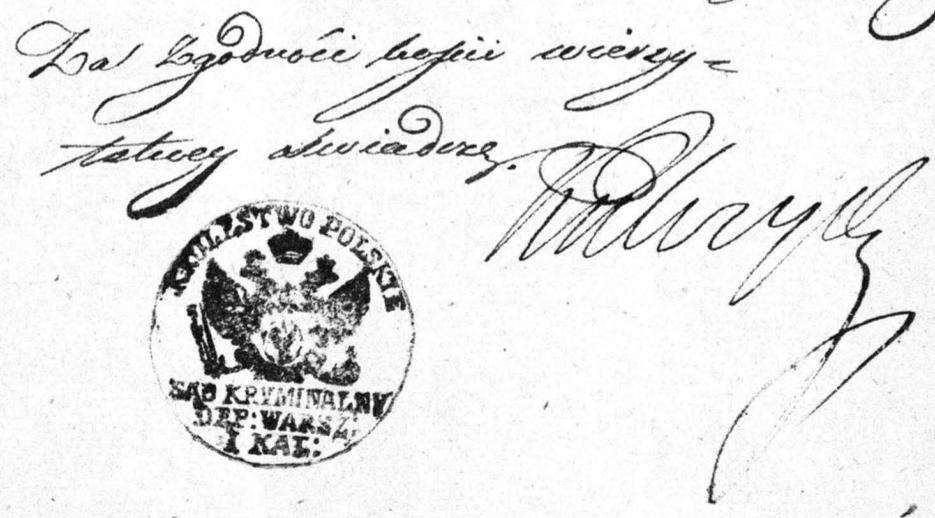 Za Zgodności kopii wierzy=
telnej świadczę
KROLESTWO POLSKIE
SĄD KRYMINALNY
DEP: WARSZ:
I KAL: